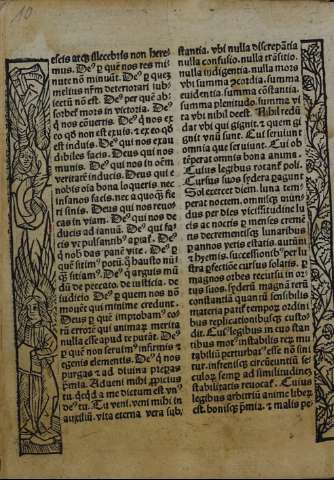 10
escis atq3 illecebris non here
mus. De9 p quē nos res mi
nute nō minuūt. De9 p quē
melius nr̄m deteriori sub
iectū nō est. De9 per quē ab
sorbet mors in victoria. De9
q nos cōuertis De9 q nos ex
eo qd̄ non est exuis: & eo qd̄
est induis. De9 qui nos exau
dibiles facis. Deus qui nos
munis. De9 qui nos in oēm
veritatē inducis. Deus qui
nobis oīa bona loqueris: nec
insanos facis: nec a quoq̄ fie
ri sinis. Deus qui nos reuo
cas in viam. De9 qui nos de
ducis ad ianuā. De9 qui fa
cis vt pulsantib9 apiat̄. De9
q nob das panē vite. De9 p
quē sitim9 potū: q hausto nū
q̄ sitim9. De9 q arguis mū
dū de peccato. de iusticia. de
iudicio De9 p quem nos nō
mouēt qui minime credunt.
Deus p quē improbam9 eo
rū errorē qui animarū merita
nulla esse apud te putāt. De9
p quē non seruim9 infirmis &
egenis elementis. De9 q nos
purgas & ad diuina p̄paras
premia. Adueni mihi propicius
tu. qcqd a me dictum est vn9
de9 tu. Tu veni. veni mihi in
auxiliū. vna eterna vera sub
stantia. vbi nulla discrepātia
nulla confusio. nulla trāsitio.
nulla indigentia. nulla mors
vbi summa cōcordia. summa
euidentia. summa cōstantia.
summa plenitudo. summa vi
ta vbi nihil deest. Nihil redū
dat vbi qui gignit. & quem gi
gnit vnū sunt. Cui seruiunt
omnia que seruiunt. Cui ob
tēperat omnis bona anima.
Cuius legibus rotant̄ poli.
Cursus suos sydera pagunt
Sol exercet diem. luna tem
perat noctem. omnisq3 mun
dus per dies vicissitudine lu
cis & noctis p menses cremē
tis decrementisq3 lunaribus
p annos veris estatis. autūni
& hyemis. successionib9. per lu
stra pfectione cursus solaris. p
magnos orbes recursu in or
tus suos. syderū magnā rerū
constantiā quantū sensibilis
materia patit̄ tempor̄ ordini
bus replicationibusq3 custo
dit. Cui9 legibus in euo stan
tibus mot9 instabilis rerū mu
tabiliū perturbat9 esse nō sini
tur. infrenisq3 circūeuntiū se
culorū semp ad similitudinē
stabilitatis reuocat̄. Cuius
legibus arbitriū anime liberū
est. bonisq3 pmia. & malis pe